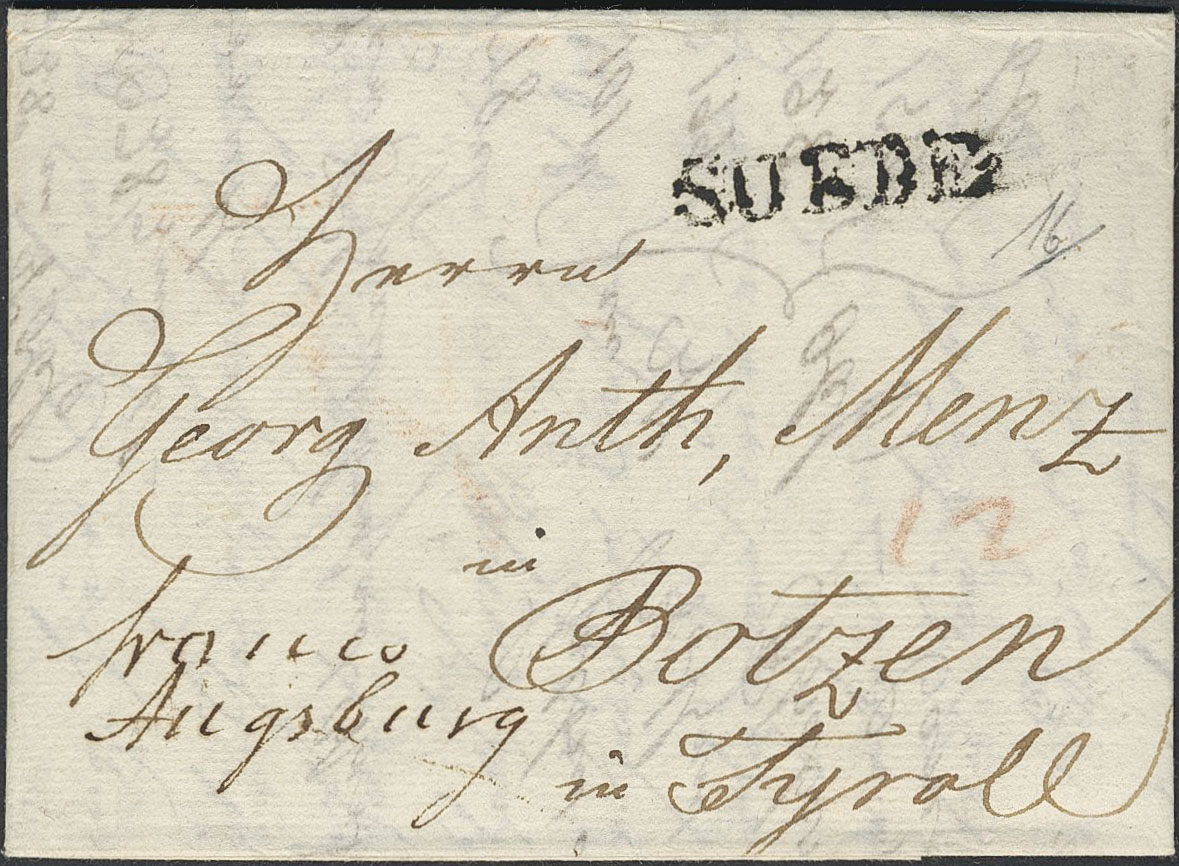 SUEDE
16
Herrn
Georg Anth, Menz
12
in
Botzen
franco
Augsburg
in Tyroll